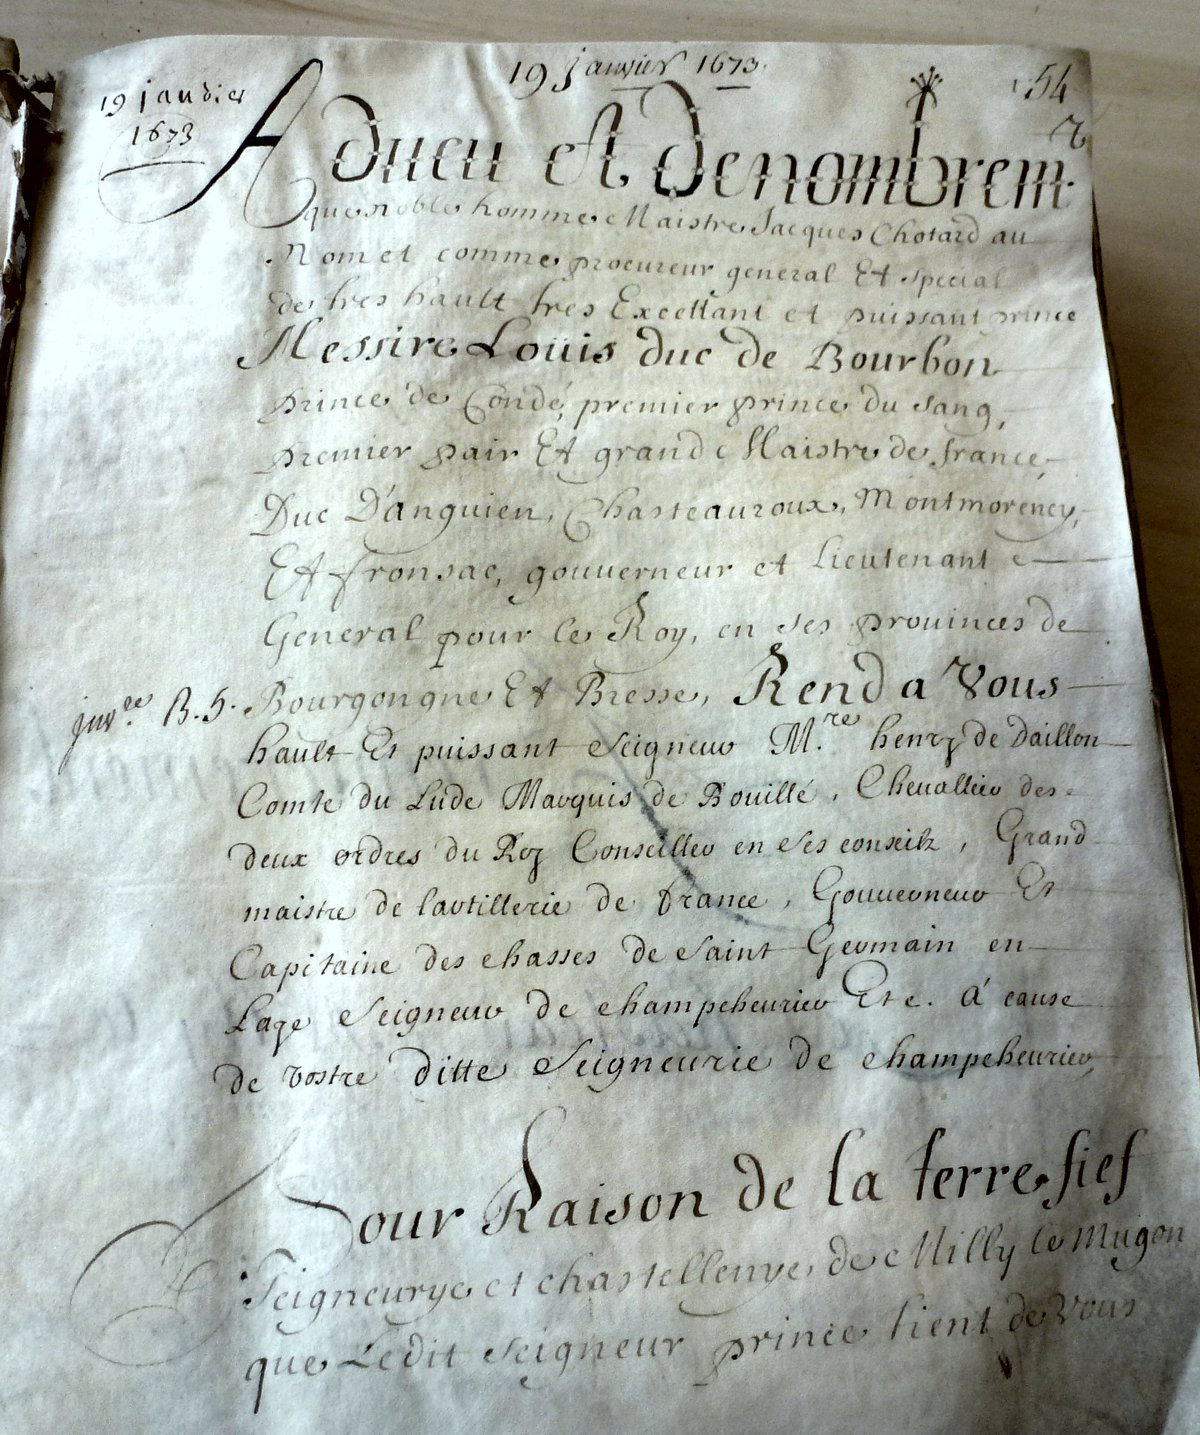 19 janvier 1673.
19 janvier
1673
54
Adueu et Denombrem.
que noble homme Maistre Jacques Chotard au
Nom et comme procureur general Et special
de tres hault tres Excellant et puissant prince
Messire Loüis duc de Bourbon
prince de Condé, premier prince du sang,
premier pair Et grand Maistre de france,
Duc D'anguien, Chasteauroux, Montmorency,
Et fronsac, gouuerneur et Lieutenant
General pour le Roy, en ses prouinces de
juv.ee B. 5.
Bourgongne Et Bresse, Rend a Vous
hault Et puissant Seigneur M.re henry de Daillon
Comte du Lude Marquis de Bouillé, Cheuallier des
deux ordres du Roy Conseiller en Ses conseilz, Grand
maistre de lartillerie de france, Gouuerneur Et
Capitaine des chasses de Saint Germain en
Laye Seigneur de champcheurier Etc. á cause
de vostre ditte Seigneurie de champcheurier,
Pour Raison de la terre fief
Seigneurye et chastellenye de Milly le Mugon
que Ledit Seigneur prince tient de Vous